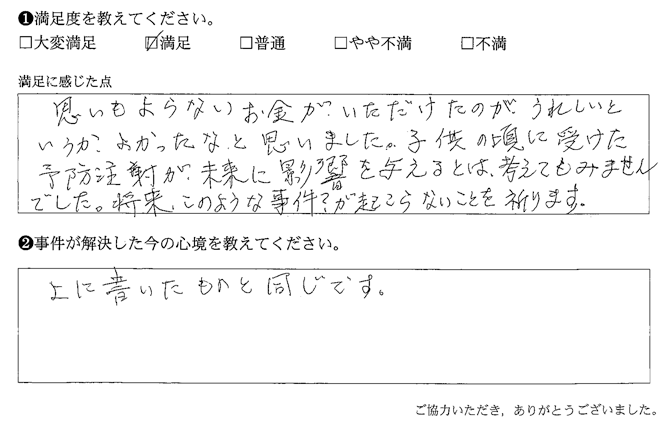 ❶満足度を教えてください。
□大変満足 ☑満足 □普通 □やや不満 □不満
満足に感じた点
思いもよらないお金が、いただけたのが、うれしいと
いうか、よかったなと思いました。子供の頃に受けた
予防注射が、未来に影響を与えるとは、考えてもみません
でした。将来、このような事件?が起こらないことを祈ります。
❷事件が解決した今の心境を教えてください。
上に書いたものと同じです。
ご協力いただき，ありがとうございました。